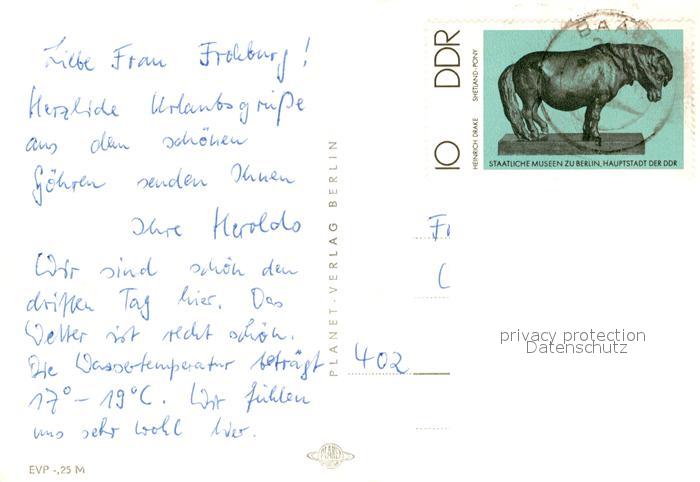 Liebe Frau Frohburg!
Herzliche Urlaubsgrüße
aus dem schönen
Göhren senden Ihnen
Ihre Herolds
Wir sind schon den
dritten Tag hier. Das
Wetter ist recht schön.
Die Wassertemperatur beträgt
17° – 19°C. Wir fühlen
uns sehr wohl hier.
EVP -,25 M
PLANET-VERLAG BERLIN
PLANET
10 DDR
HEINRICH DRAKE SHETLAND-PONY
STAATLICHE MUSEEN ZU BERLIN, HAUPTSTADT DER DDR
BAA
402
privacy protection
Datenschutz